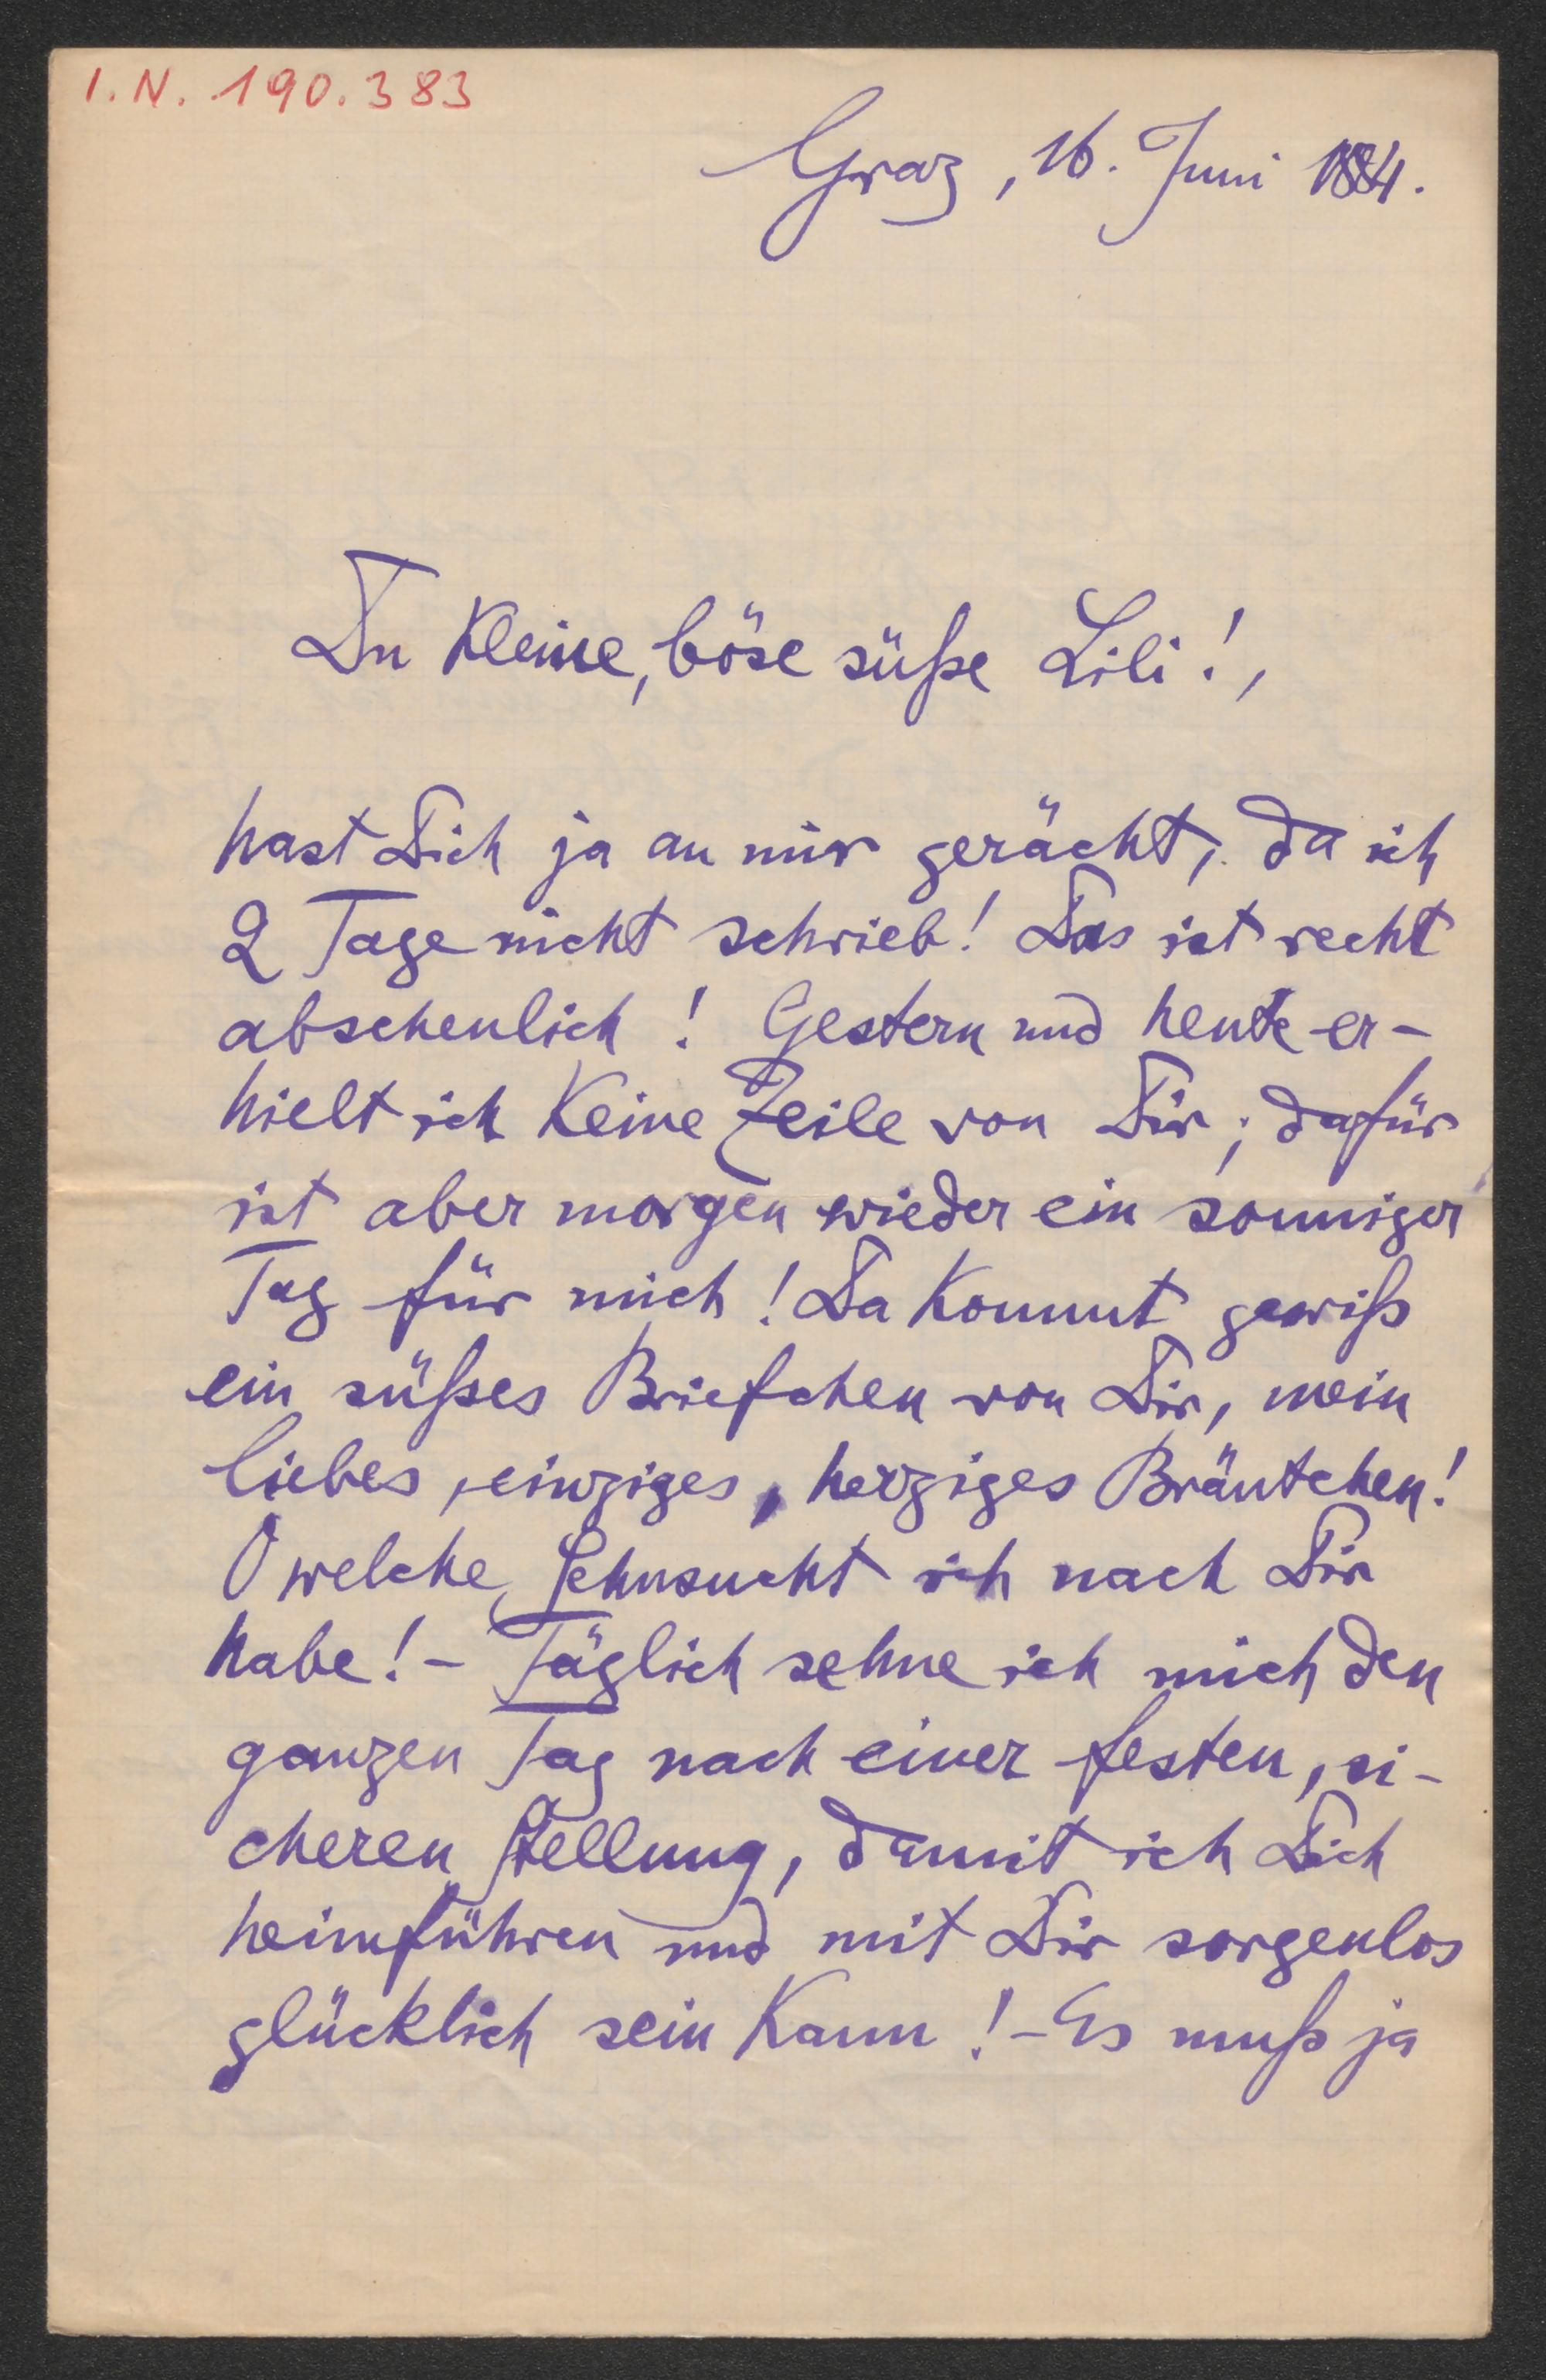 I.N. 190.383
Graz, 16. Juni 1884.
Du kleine, böse süße Lili!,
hast Dich ja an mir gerächt, da ich
2 Tage nicht schrieb! Das ist recht
abscheulich! Gestern und heute er-
hielt ich keine Zeile von Dir; dafür
ist aber morgen wieder ein sonniger
Tag für mich! Da kommt gewiß
ein süßes Briefchen von Dir, mein
liebes, einziges, herziges Bräutchen!
O welche Sehnsucht ich nach Dir
habe! - Täglich sehne ich mich den
ganzen Tag nach einer festen, si-
cheren Stellung, damit ich Dich
heimführen und mit Dir sorgenlos
glücklich sein kann! - Es muß ja